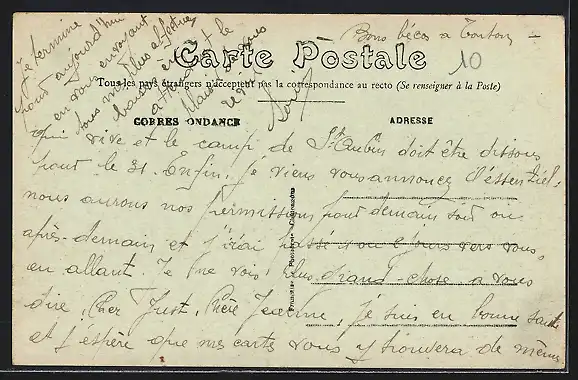 Bons bécos a Tonton
10
Carte Postale
Tous les pays étrangers n'acceptent pas la correspondance au recto (Se renseigner à la Poste)
CORRESPONDANCE
ADRESSE
Je termine
pour aujourd'hui
en vous envoyant
tous mes plus affectueux
baisers
et le
plaisir de vous
qui vive et le camp de St Aubin doit être dissous
pour le 31. Enfin, je viens vous annoncer l'éssentiel,
nous aurons nos permissions pour demain soir ou
après-demain et j'irai passé 1 ou 2 jours vers vous,
en allant. Je ne vois plus grand-chose a vous
dire, Cher Just, Chère Jeanne, je suis en bonne santé
et j'éspère que mes cartes vous y trouvera de même.